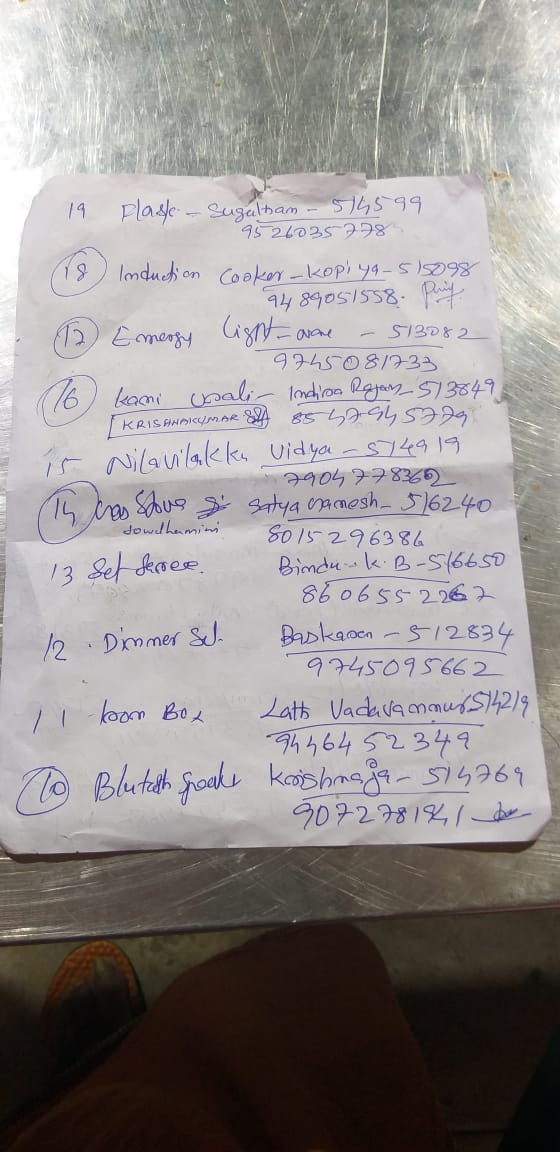 19 Flask - Sugathan - 514599
9526035778
18 Induction Cooker - Kopiya - 515098
9489051558.
17 Emergy Light - - 513082
9745081733
16 Kani Urali - Indira Rajan - 513849
KRISHNAKUMAR 8547945779
15 Nilavilakku Vidya - 514919
7904778362
14 Gas Stove Satya Ramesh - 516240
dowdhamini 8015296386
13 Set Seree. Bindu. K. B - 516650
8606552267
12. Dinner Set. Baskaran - 512834
9745095662
11 Iron Box Lath Vadavannur 514219
9446452349
10 Blutoth Speaker Krishnaja - 514769
9072781941